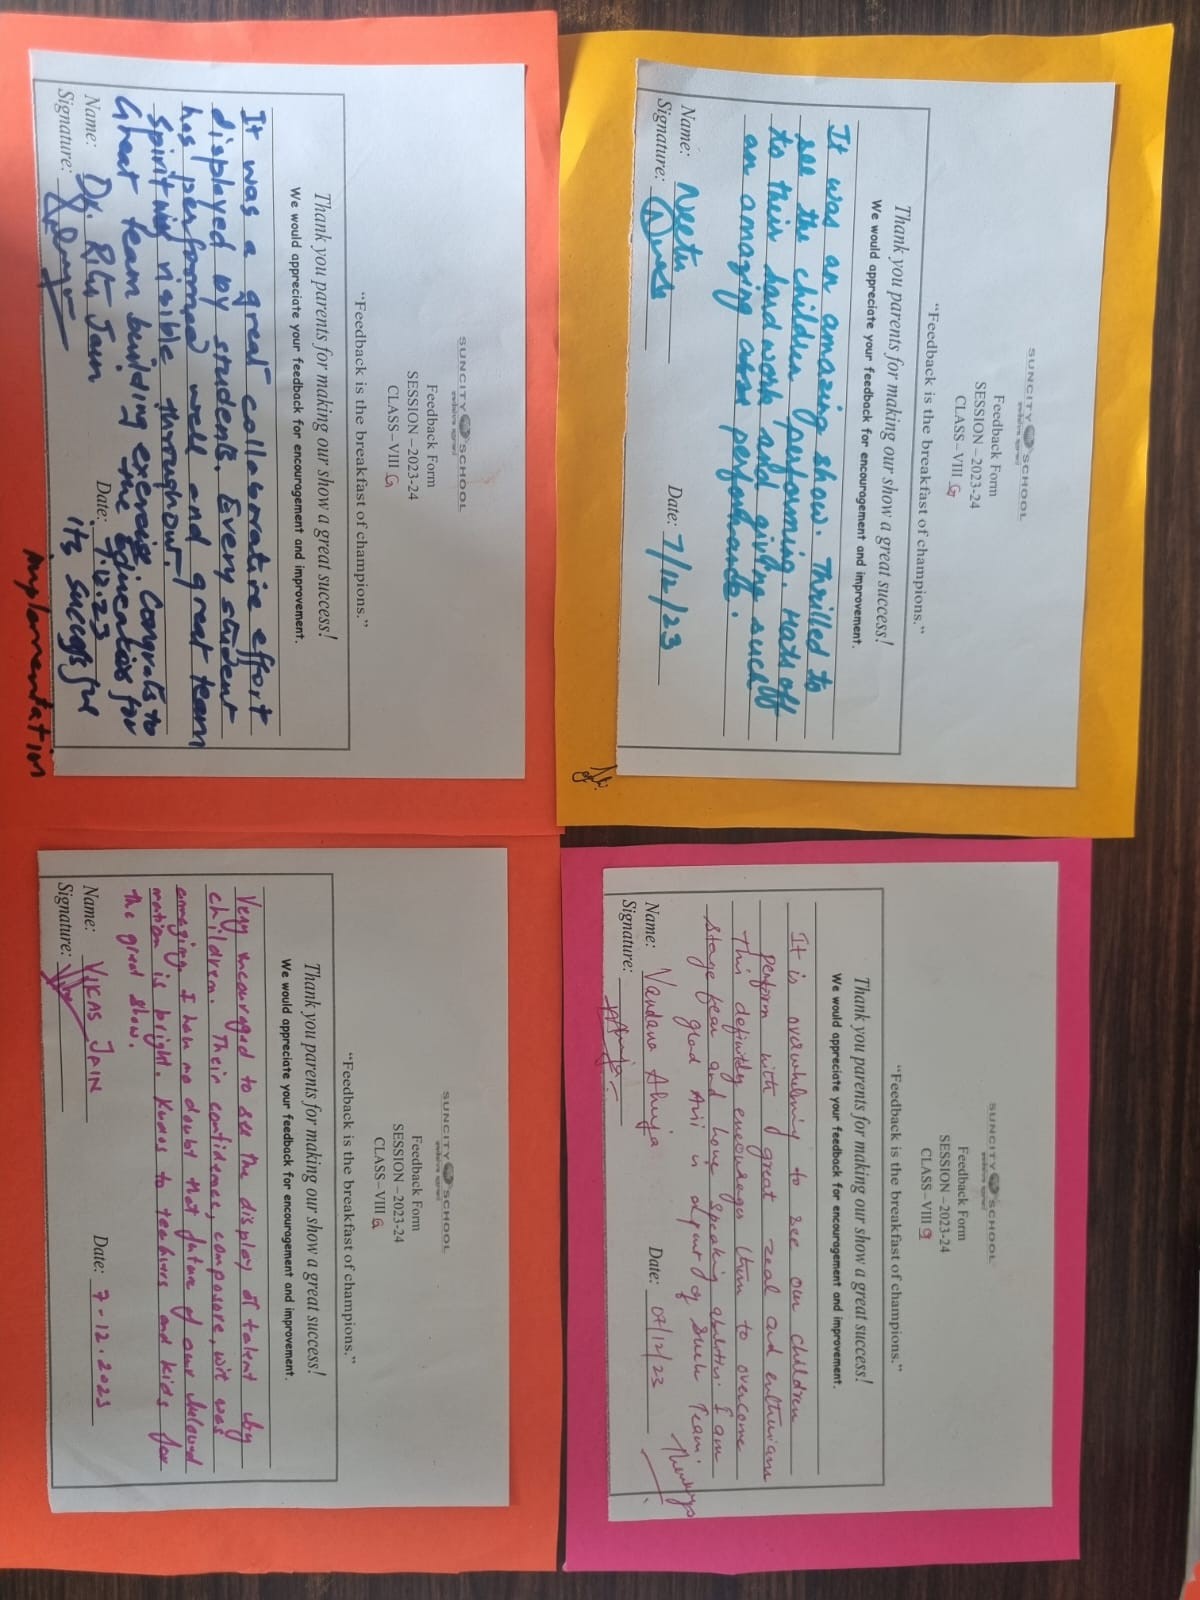 SUNCITY SCHOOL
Feedback Form
SESSION – 2023-24
CLASS – VIII G
"Feedback is the breakfast of champions."
Thank you parents for making our show a great success!
We would appreciate your feedback for encouragement and improvement.
It was a great collaborative effort
displayed by students. Every student
has performed well and great team
spirit was visible throughout.
Great team building exercise. Congrats to
the Educaties for
its successful
implementation
Name: Dr. Ritu Jain
Date: 7.12.23
Signature:
SUNCITY SCHOOL
Feedback Form
SESSION – 2023-24
CLASS – VIII G
"Feedback is the breakfast of champions."
Thank you parents for making our show a great success!
We would appreciate your feedback for encouragement and improvement.
It was an amazing show. Thrilled to
see the children performing. Hats off
to their hard work and giving such
an amazing performance.
Name: Neetu
Date: 7/12/23
Signature:
SUNCITY SCHOOL
Feedback Form
SESSION – 2023-24
CLASS – VIII G
"Feedback is the breakfast of champions."
Thank you parents for making our show a great success!
We would appreciate your feedback for encouragement and improvement.
Very encouraged to see the display of talent by
children. Their confidence, composure, wit was
amazing. I have no doubt that future of our beloved
nation is bright. Kudos to teachers and kids for
the great show.
Name: VIKAS JAIN
Date: 7-12.2023
Signature:
SUNCITY SCHOOL
Feedback Form
SESSION – 2023-24
CLASS – VIII G
"Feedback is the breakfast of champions."
Thank you parents for making our show a great success!
We would appreciate your feedback for encouragement and improvement.
It is overwhelming to see our children
perform with great zeal and enthusiasm
This definitely encourages them to overcome
stage fear and hone speaking abilities. I am
glad is a part of such Team.
Name: Vandana Ahuja
Date: 07/12/23
Signature: